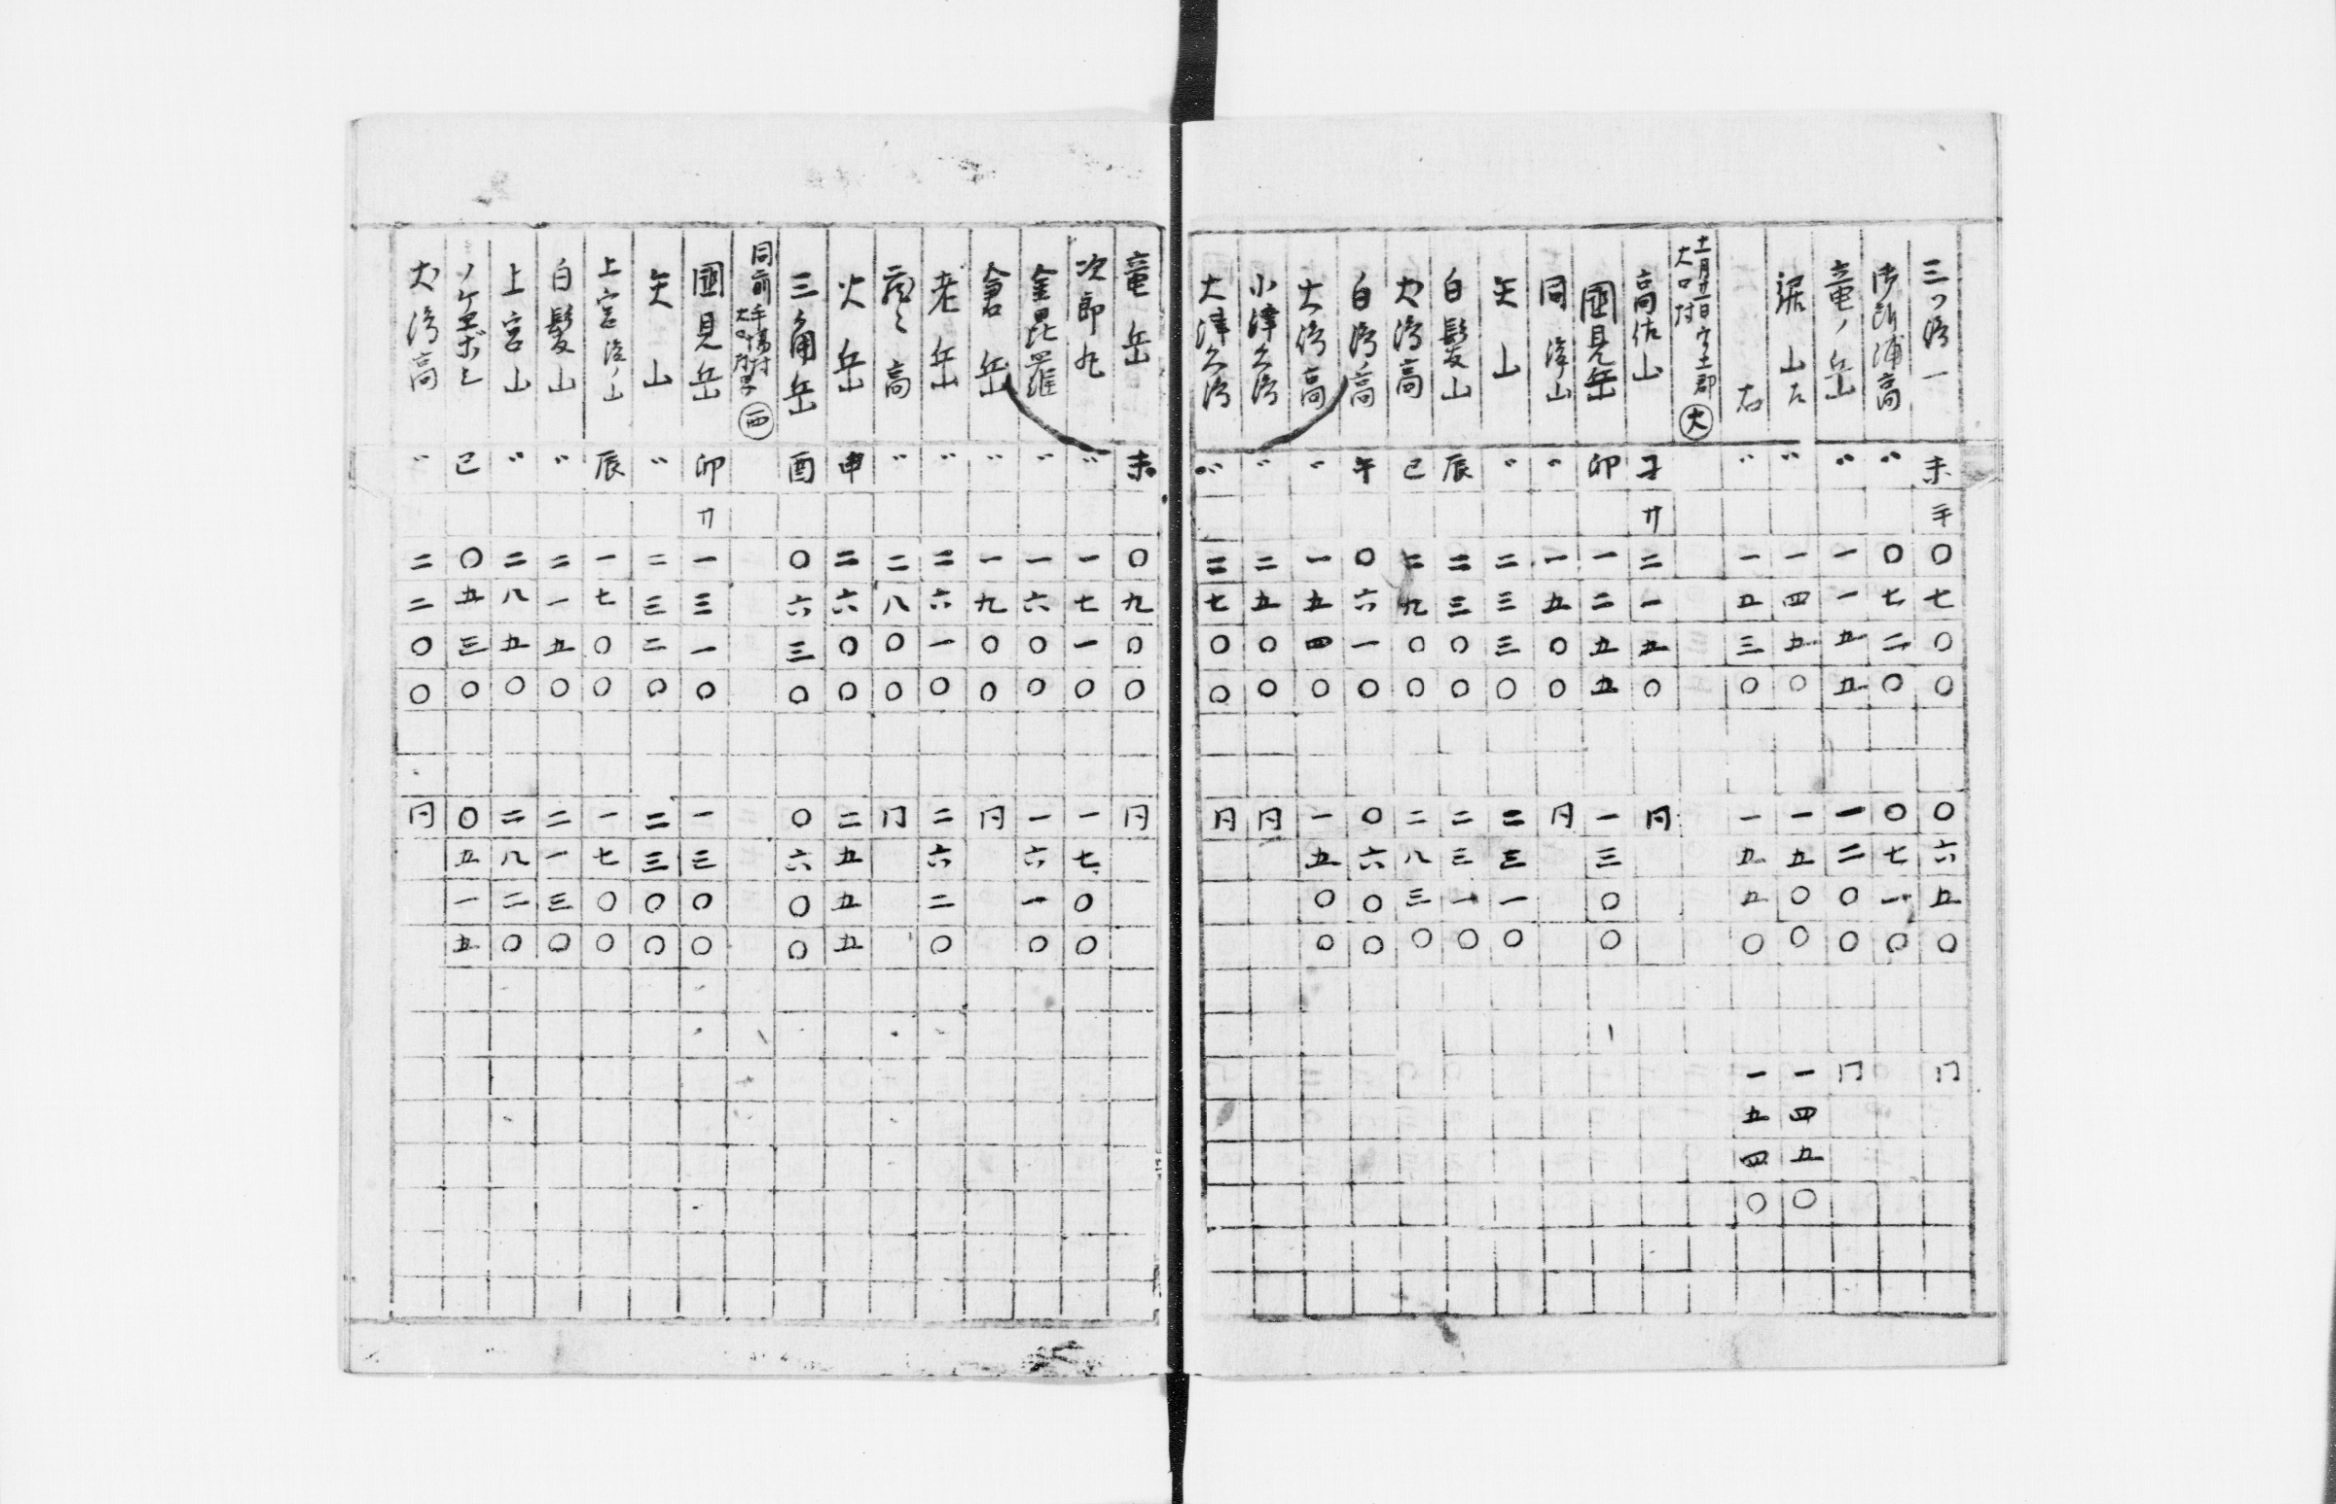 三ツ 未 手 〇七〇〇 〇六五〇 冂
浦高 〃 〇七二〇 〇七一〇
竜ノ岳 〃 一一五五 一二〇〇 冂
山 〃 一四五〇 一五〇〇 一四五〇
右 〃 一五三〇 一五五〇 一五四〇
十一月 日宇土郡
大口村 大
高佐山 子 廾 二一五〇 同
國見岳 卯 一二五五 一三〇〇
同 山 〃 一五〇〇 同
矢山 〃 二三三〇 二三一〇
白髪山 辰 二三〇〇 二三一〇
高 巳 二九〇〇 二八三〇
白 高 午 〇六一〇 〇六〇〇
大 高 〃 一五四〇 一五〇〇
小津久 〃 二五〇〇 同
大津久 〃 二七〇〇 同
竜岳 未 〇九〇〇 同
次郎丸 〃 一七一〇 一七〇〇
金毘羅 〃 一六〇〇 一六一〇
倉岳 〃 一九〇〇 同
老岳 〃 二六一〇 二六二〇
高 〃 二八〇〇 冂
火岳 申 二六〇〇 二五五五
三角岳 酉 〇六三〇 〇六〇〇
同前 手場村 西
國見岳 卯 廾 一三一〇 一三〇〇
矢山 〃 二三二〇 二三〇〇
上宮 ノ山 辰 一七〇〇 一七〇〇
白髪山 〃 二一五〇 二一三〇
上宮山 〃 二八五〇 二八二〇
ノケヱボシ 巳 〇五三〇 〇五一五
大 高 〃 二二〇〇 同